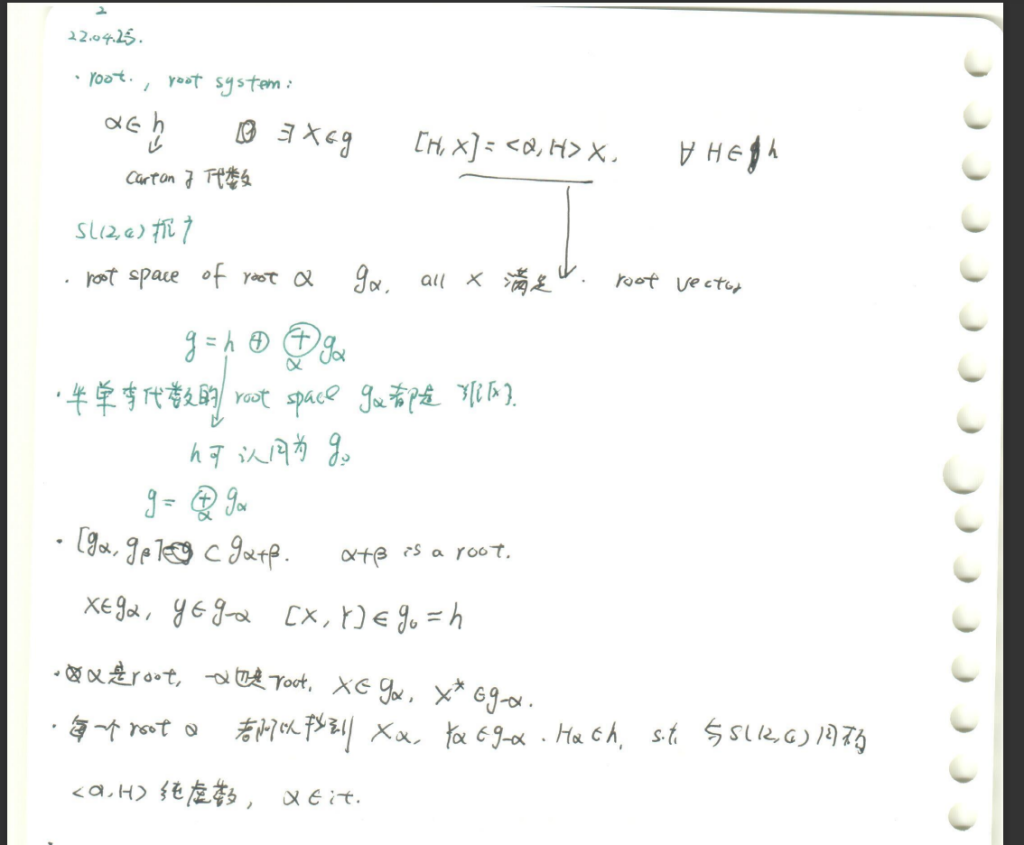 2
22.04.25.
· root. , root system:
α∈h ∃X∈g [H,X]=<α,H>X. ∀ H∈h
Cartan子代数
SL(2,C)推广
· root space of root α gα. all X 满足 . root vector
g = h ⊕ ⊕_α gα
· 半单李代数的 root space gα都是
h可认同为 g₀
g = ⊕_α gα
· [gα, gβ] ⊂ gα+β. α+β is a root.
X∈gα, y∈g-α [X,Y]∈g₀=h
· α是root, -α也是root, X∈gα, X*∈g-α.
· 每一个root α 都可以找到 Xα, Yα∈g-α. Hα∈h, s.t. 与SL(2,C)同构
<α,H> 纯虚数, α∈it.